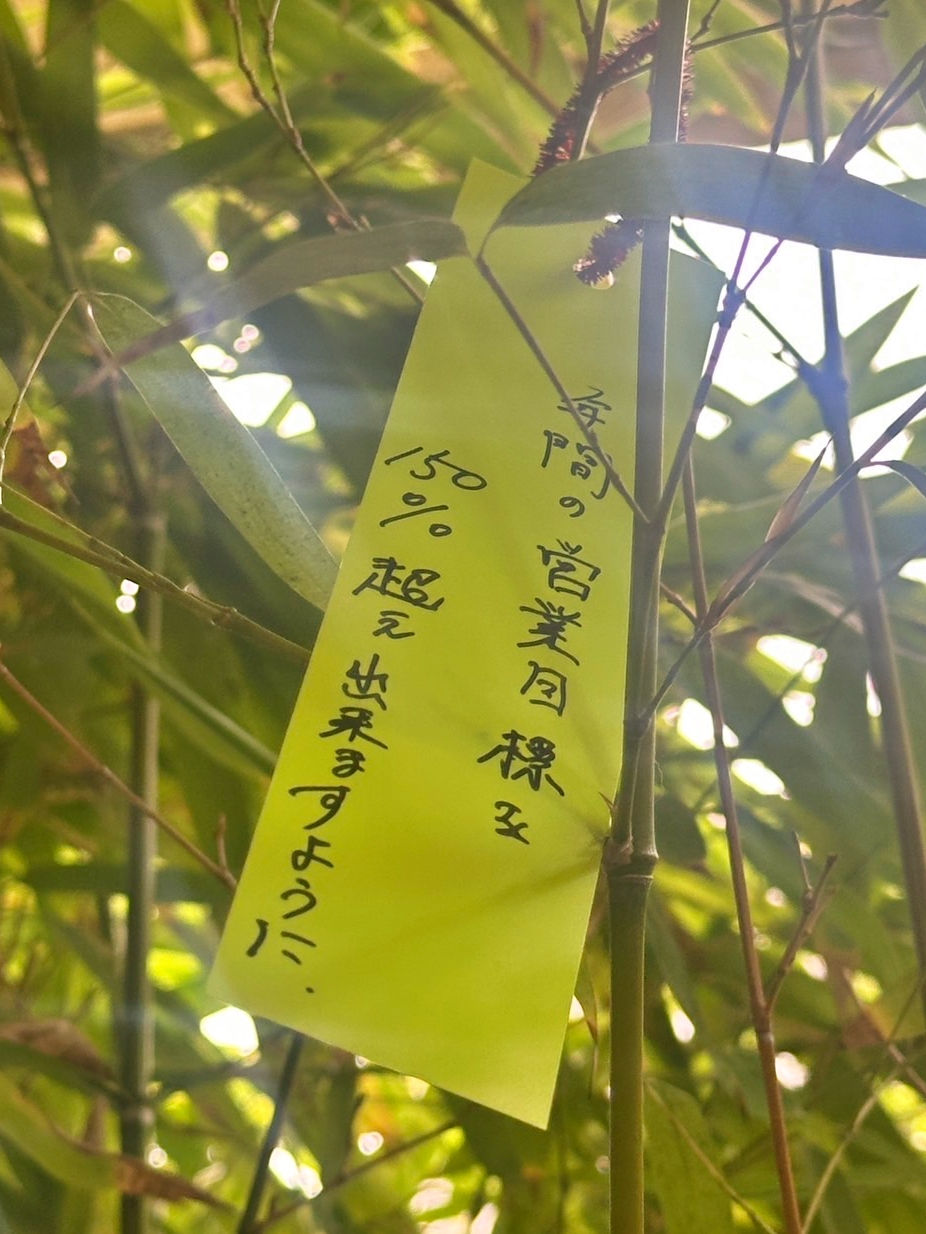 年間の営業目標を
150%超え出来ますように.